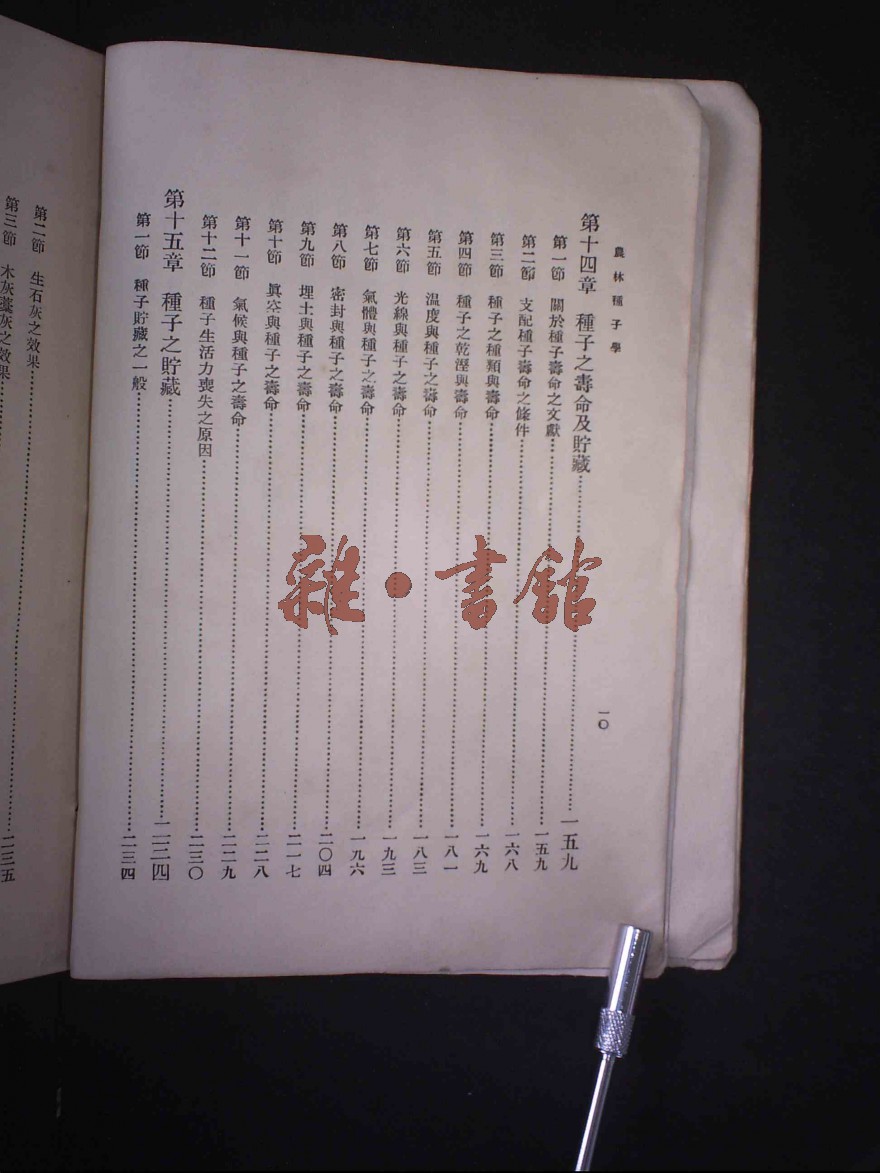 農林種子學
一〇
第十四章 種子之壽命及貯藏……一五九
第一節 關於種子壽命之文獻……一五九
第二節 支配種子壽命之條件……一六八
第三節 種子之種類與壽命……一六九
第四節 種子之乾溼與壽命……一八一
第五節 溫度與種子之壽命……一八三
第六節 光線與種子之壽命……一九三
第七節 氣體與種子之壽命……一九六
第八節 密封與種子之壽命……二〇四
第九節 埋土與種子之壽命……二一七
第十節 眞空與種子之壽命……二二八
第十一節 氣候與種子之壽命……二二九
第十二節 種子生活力喪失之原因……二三〇
第十五章 種子之貯藏……二三四
第一節 種子貯藏之一般……二三四
第二節 生石灰之效果……二三五
第三節 木灰藁灰之效果……
雜·書館